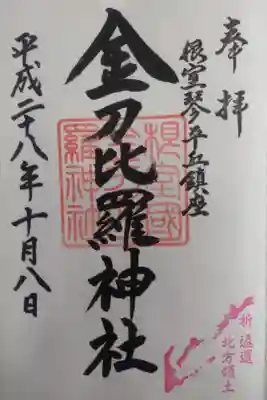 奉拝
根室琴平丘鎮座
金刀比羅神社
平成二十八年十月八日
根室國
金刀比
羅神社
祈返還
北方領土